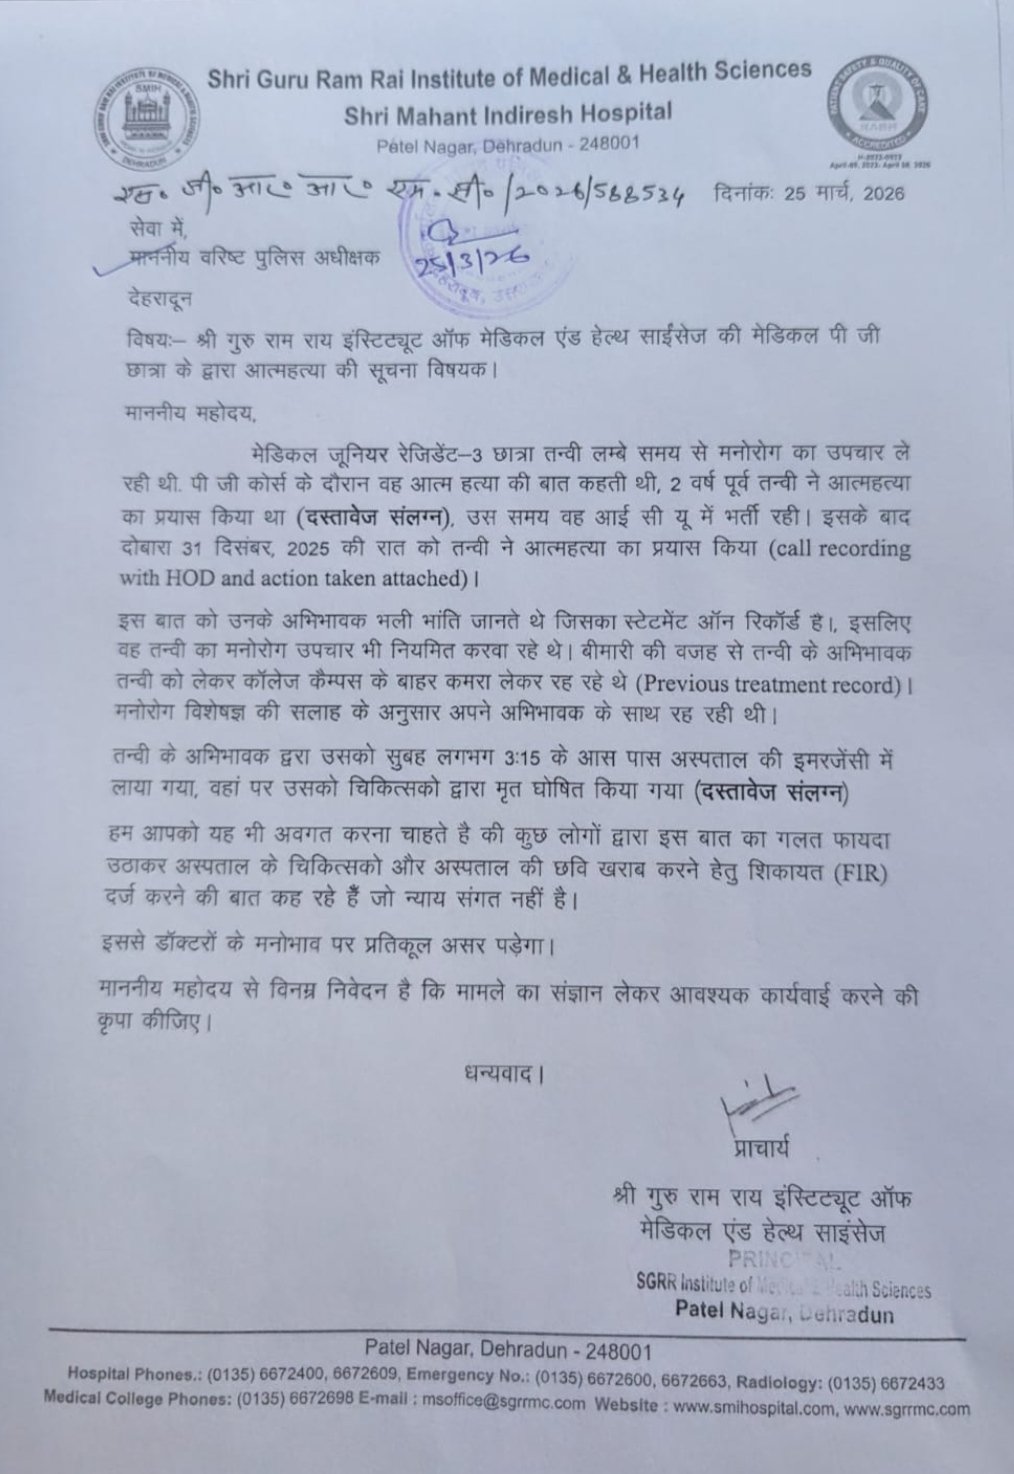 Shri Guru Ram Rai Institute of Medical & Health Sciences
Shri Mahant Indiresh Hospital
Patel Nagar, Dehradun - 248001
SMIH
DEHRADUN
PATIENT SAFETY & QUALITY OF CARE
NABH
ACCREDITED
H-2023-0923
April-09, 2023- April 08, 2026
एस. जी० आर० आर० एम. सी० /2026/588534 दिनांक: 25 मार्च, 2026
सेवा में,
माननीय वरिष्ट पुलिस अधीक्षक
25/3/26
देहरादून
विषयः– श्री गुरु राम राय इंस्टिट्यूट ऑफ मेडिकल एंड हेल्थ साईंसेज की मेडिकल पी जी
छात्रा के द्वारा आत्महत्या की सूचना विषयक।
माननीय महोदय,
मेडिकल जूनियर रेजिडेंट–3 छात्रा तन्वी लम्बे समय से मनोरोग का उपचार ले
रही थी. पी जी कोर्स के दौरान वह आत्म हत्या की बात कहती थी, 2 वर्ष पूर्व तन्वी ने आत्महत्या
का प्रयास किया था (दस्तावेज संलग्न), उस समय वह आई सी यू में भर्ती रही। इसके बाद
दोबारा 31 दिसंबर, 2025 की रात को तन्वी ने आत्महत्या का प्रयास किया (call recording
with HOD and action taken attached)।
इस बात को उनके अभिभावक भली भांति जानते थे जिसका स्टेटमेंट ऑन रिकॉर्ड है।, इसलिए
वह तन्वी का मनोरोग उपचार भी नियमित करवा रहे थे। बीमारी की वजह से तन्वी के अभिभावक
तन्वी को लेकर कॉलेज कैम्पस के बाहर कमरा लेकर रह रहे थे (Previous treatment record)।
मनोरोग विशेषज्ञ की सलाह के अनुसार अपने अभिभावक के साथ रह रही थी।
तन्वी के अभिभावक द्वरा उसको सुबह लगभग 3:15 के आस पास अस्पताल की इमरजेंसी में
लाया गया, वहां पर उसको चिकित्सको द्वारा मृत घोषित किया गया (दस्तावेज संलग्न)
हम आपको यह भी अवगत करना चाहते है की कुछ लोगों द्वारा इस बात का गलत फायदा
उठाकर अस्पताल के चिकित्सको और अस्पताल की छवि खराब करने हेतु शिकायत (FIR)
दर्ज करने की बात कह रहे हैं जो न्याय संगत नहीं है।
इससे डॉक्टरों के मनोभाव पर प्रतिकूल असर पड़ेगा।
माननीय महोदय से विनम्र निवेदन है कि मामले का संज्ञान लेकर आवश्यक कार्यवाई करने की
कृपा कीजिए।
धन्यवाद।
प्राचार्य
श्री गुरु राम राय इंस्टिट्यूट ऑफ
मेडिकल एंड हेल्थ साइंसेज
PRINCIPAL
SGRR Institute of Medical & Health Sciences
Patel Nagar, Dehradun
Patel Nagar, Dehradun - 248001
Hospital Phones.: (0135) 6672400, 6672609, Emergency No.: (0135) 6672600, 6672663, Radiology: (0135) 6672433
Medical College Phones: (0135) 6672698 E-mail : msoffice@sgrrmc.com Website : www.smihospital.com, www.sgrrmc.com